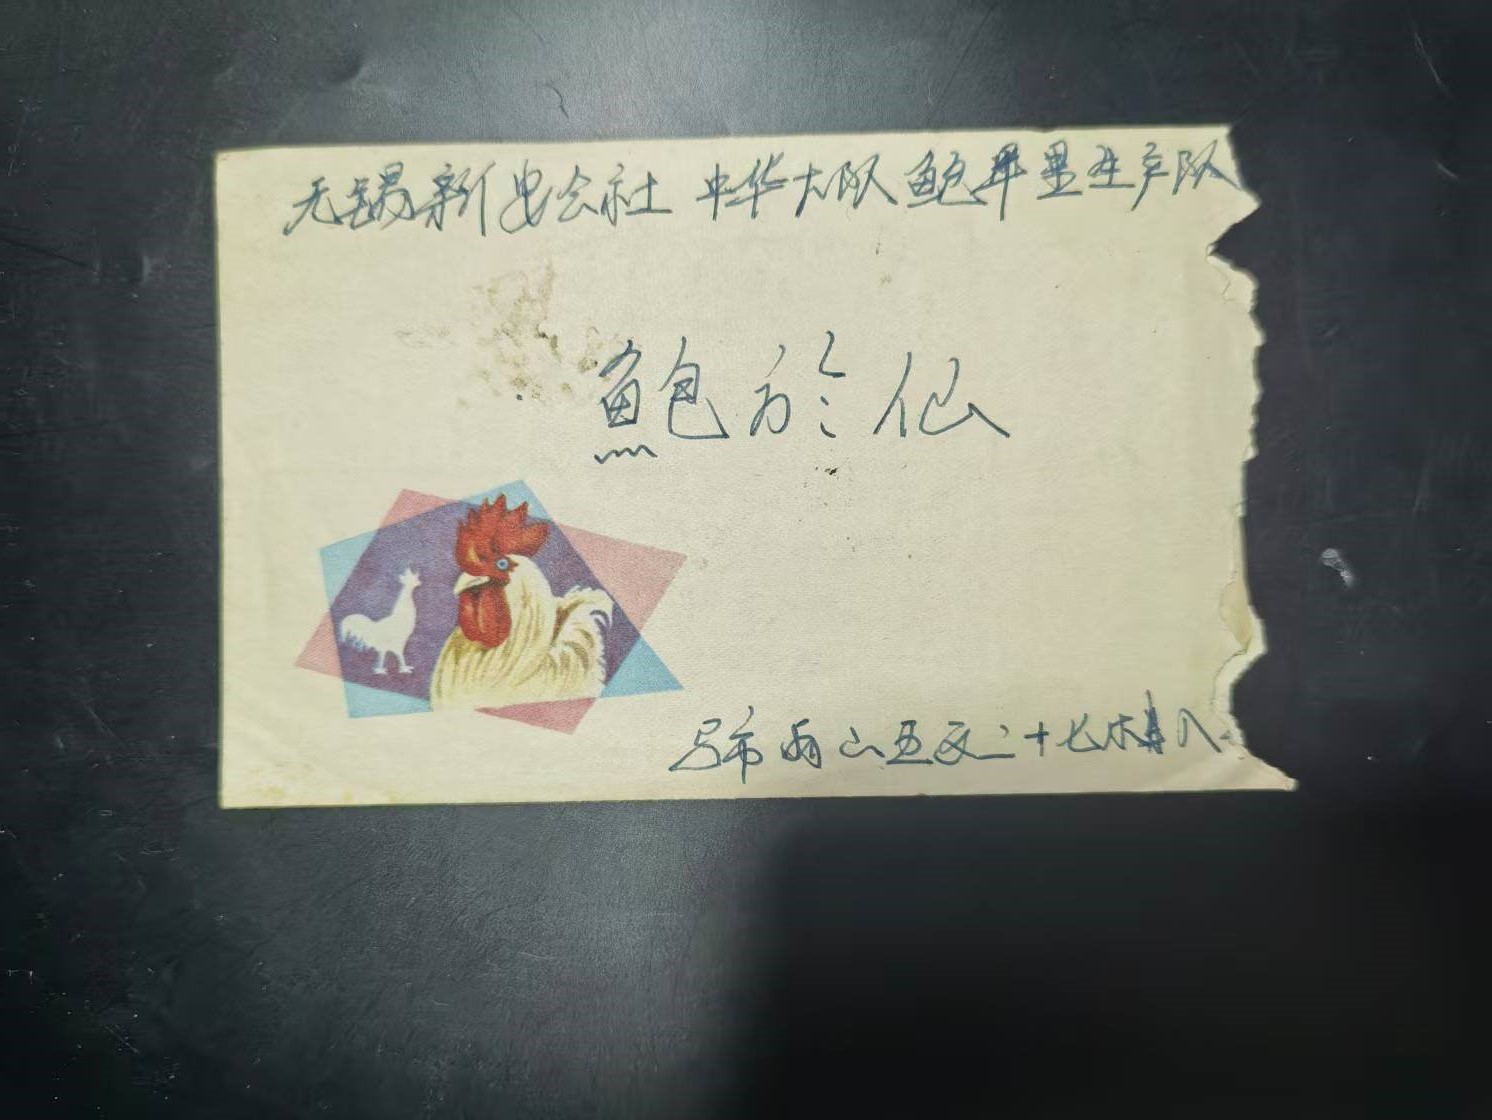 无锡新安公社 中华大队鲍巷里生产队
鲍於仙
马市雨山五区二十七栋八